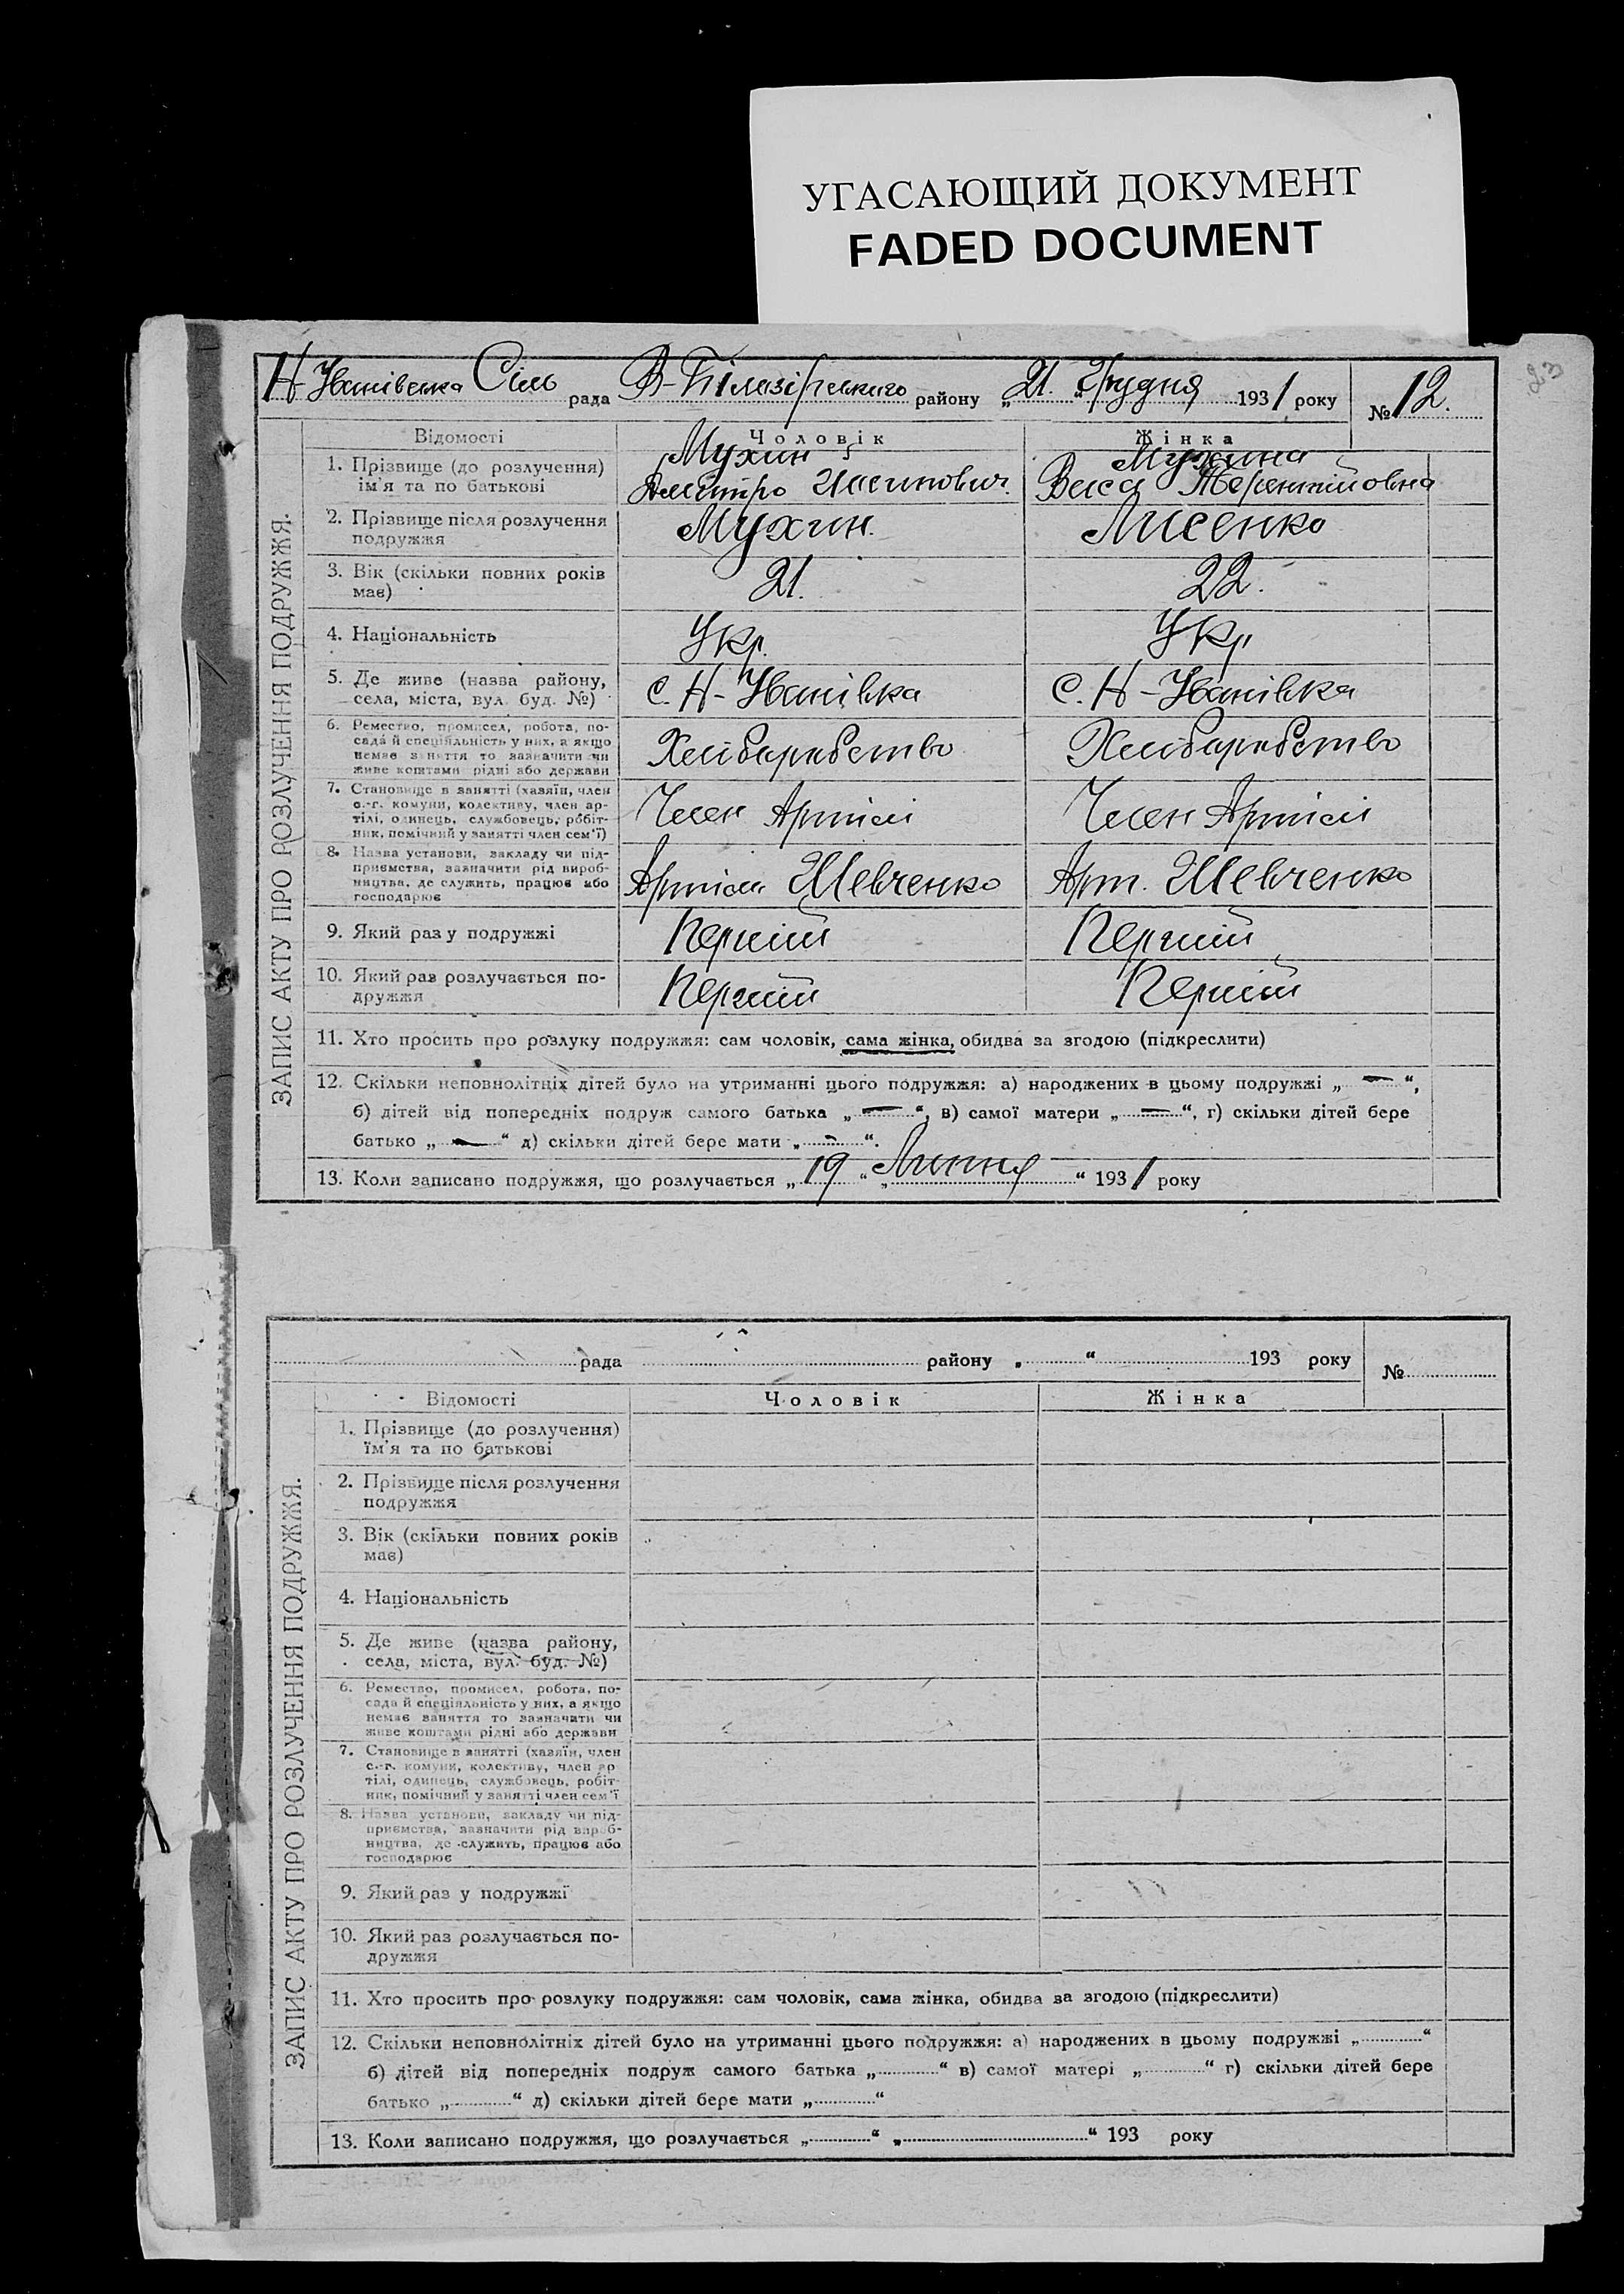 УГАСАЮЩИЙ ДОКУМЕНТ
FADED DOCUMENT
23
Н-Іванівська Сіль рада В-Білазірського району „21.“ Грудня 1931 року №12.
ЗАПИС АКТУ ПРО РОЗЛУЧЕННЯ ПОДРУЖЖЯ.
Відомості Чоловік Жінка
Мухин Мухина
1. Прізвище (до розлучення)
ім'я та по батькові Дмитро Терентійовна
2. Прізвище після розлучення
подружжя Мухин. Лисенко
3. Вік (скільки повних років
має) 21. 22.
4. Національність Укр. Укр
5. Де живе (назва району,
села, міста, вул. буд. №) с. Н-Іванівка с. Н-Іванівка
6. Ремество, промисел, робота, по-
сада й спеціяльність у них, а якщо
немає заняття то зазначити чи
живе коштами рідні або держави Хліборобство Хліборобство
7. Становище в занятті (хазяїн, член
с.-г. комуни, колективу, член ар-
тілі, одинець, службовець, робіт-
ник, помічний у занятті член сем'ї) Член Артілі Член Артілі
8. Назва установи, закладу чи під-
приємства, зазначити рід вироб-
ництва, де служить, працює або
господарює Артіль Шевченко Арт. Шевченко
9. Який раз у подружжі Перший Перший
10. Який раз розлучається по-
дружжя Перший Перший
11. Хто просить про розлуку подружжя: сам чоловік, сама жінка, обидва за згодою (підкреслити)
12. Скільки неповнолітніх дітей було на утриманні цього подружжя: а) народжених в цьому подружжі „ — “,
б) дітей від попередніх подруж самого батька „ — “, в) самої матери „ — “, г) скільки дітей бере
батько „ — “ д) скільки дітей бере мати „ — “.
13. Коли записано подружжя, що розлучається „19“ „Липня“ 1931 року
рада району „ “ 193 року №
ЗАПИС АКТУ ПРО РОЗЛУЧЕННЯ ПОДРУЖЖЯ.
Відомості Чоловік Жінка
1. Прізвище (до розлучення)
ім'я та по батькові
2. Прізвище після розлучення
подружжя
3. Вік (скільки повних років
має)
4. Національність
5. Де живе (назва району,
села, міста, вул. буд. №)
6. Ремество, промисел, робота, по-
сада й спеціяльність у них, а якщо
немає заняття то зазначити чи
живе коштами рідні або держави
7. Становище в занятті (хазяїн, член
с.-г. комуни, колективу, член ар
тілі, одинець, службовець, робіт-
ник, помічний у занятті член сем'ї
8. Назва установи, закладу чи під-
приємства, зазначити рід вироб-
ництва, де служить, працює або
господарює
9. Який раз у подружжі
10. Який раз розлучається по-
дружжя
11. Хто просить про розлуку подружжя: сам чоловік, сама жінка, обидва за згодою (підкреслити)
12. Скільки неповнолітніх дітей було на утриманні цього подружжя: а) народжених в цьому подружжі „ “
б) дітей від попередніх подруж самого батька „ “ в) самої матері „ “ г) скільки дітей бере
батько „ “ д) скільки дітей бере мати „ “
13. Коли записано подружжя, що розлучається „ “ „ “ 193 року